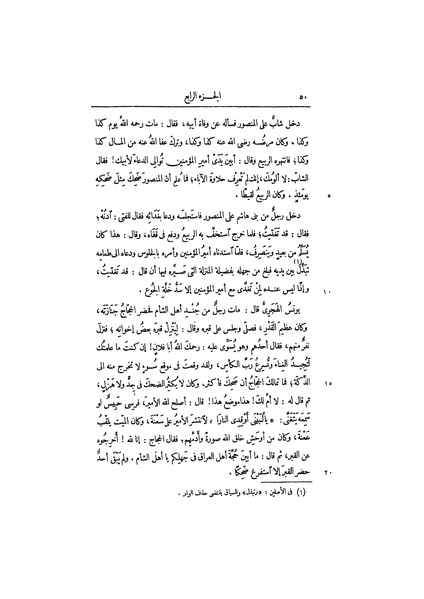 ٥٠ الجـزء الرابع
دخل شابٌّ على المنصور فسأله عن وفاة أبيه، فقال: مات رحمه اللهُ يوم كذا
وكذا، وكان مرضُه رضى اللهُ عنه كذا وكذا، وترك عفا اللهُ عنه من المـال كذا
وكذا؛ فانتهره الربيع وقال: أبينَ يَدَىْ أميرِ المؤمنين تُوالى الدعاءَ لأبيك! فقال
الشابّ: لا ألومُكَ، إنك لم تَعرِف حلاوةَ الآباء؛ فما عُلِم أنّ المنصورَ ضَحِكَ مِثلَ ضَحِكِه
يومئذٍ. وكان الربيعُ لَقِيطًا. ٥
دخل رجلٌ من بنى هاشم على المنصور فاستجلسه ودعا بغَدائه فقال للفتى: اُدنُهْ؛
فقال: قد تغدّيتُ؛ فلما خرج استخفّ به الربيعُ ودفع فى قَفَاه، وقال: هذا كان
يُسلِّمُ من بعيدٍ وينصرفُ، فلمّا استدناه أميرُ المؤمنين وأمره بالجلوس ودعاه الى طعامِه
تبذّل(١) بين يديه فبلغ من جهلِه بفضيلة المنزلة التى صَيَّره فيها أن قال: قد تغدّيتُ،
وإذًا ليس عنـده لِمَنْ تَغَدَّى مع أمير المؤمنين إلا سَدُّ خَلَّةِ الجُوع. ١٠
يونُسُ الهَجَرِىُّ قال: مات رجلٌ من جُنْـدِ أهل الشأم فحضر الحجّاجُ جَنازتَه،
وكان عظيمَ القَدْرِ، فصلّى وجلس على قبره وقال: لِيَنْزِلْ قبرَه بعضُ إخوانِه؛ فنزل
نفرٌ منهم، فقال أحدُهم وهو يُسَوِّى عليه: رحمك اللهُ أبا فلان! إن كنتَ ما علمتُك
لَتُجِيدُ الغِناءَ وتُسرِعُ رَبَّ الكأسِ، ولقد وقعتَ فى موقعِ سُـوءٍ لا تخرج منه الى
الدَّكّة؛ فما تمالك الحجّاجُ أن ضحِكَ فأكثر، وكان لا يُكثِر الضحكَ فى جِدٍّ ولا هَزْلٍ، ١٥
ثم قال له: لا أُمَّ لكَ! هذا موضعُ هذا! قال: أصلح اللهُ الأميرَ، فرسى حَبِيسٌ لو
سَمِعَه يتغنّى: * يا لُبَيْنَى أَوْقِدِى النارَا * لانتشَرَ الأميرُ على سَعْنَةَ، وكان الميّتُ يلقَّبُ
سَعْنَةَ، وكان من أوحش خلقِ الله صورةً وأَدَمِّهم؛ فقال الحجّاج: إنا لله! أخرِجُوه
عن القبر، ثم قال: ما أبينَ حُجَّةَ أهلِ العراق فى جهلِكم يا أهلَ الشأم. ولم يَبْقَ أحدٌ
حضر القبرَ إلا استفرغ ضَحِكًا. ٢٠
(١) فى الأصلين: «وتبذل» والسياق يقتضى حذف الواو.